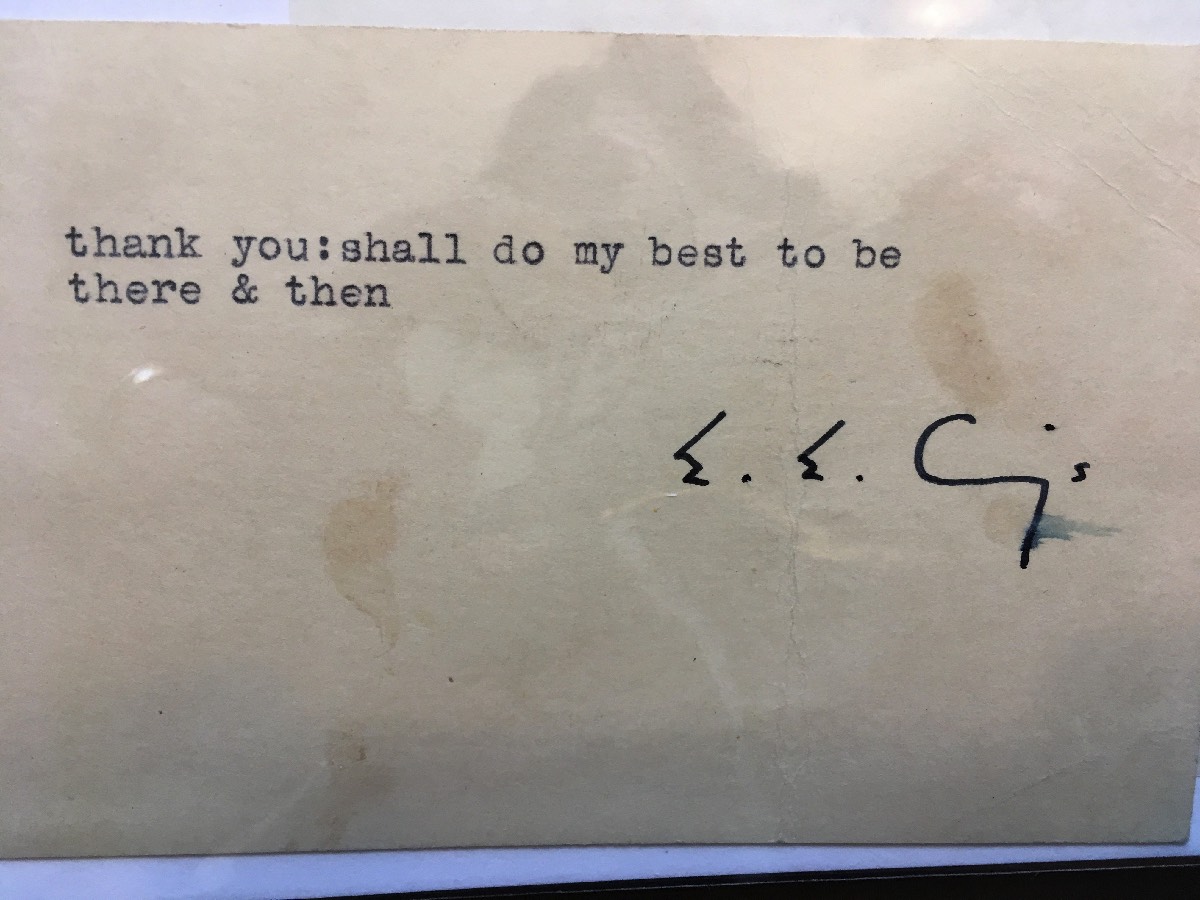 thank you:shall do my best to be
there & then
E. E. Cummings